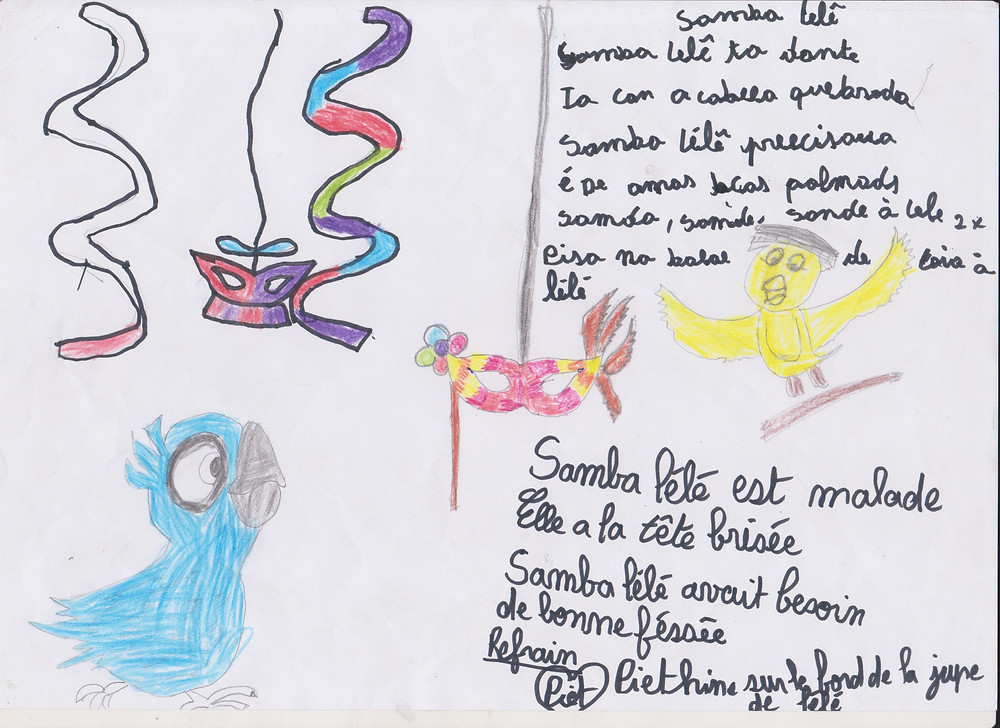 Samba lelê
Samba lelê ta dante
Ia con a cabeca quebrada
Samba lélê preecisaua
é De amas bcas palmads
samba, samide, sande à lele 2x
Pisa na balae de Caia à
lélé
Samba lélé est malade
Elle a la tête brisée
Samba lélé avait besoin
de bonne féssée
Refrain
Piet Piethine sur le fond de la jupe
de lélé